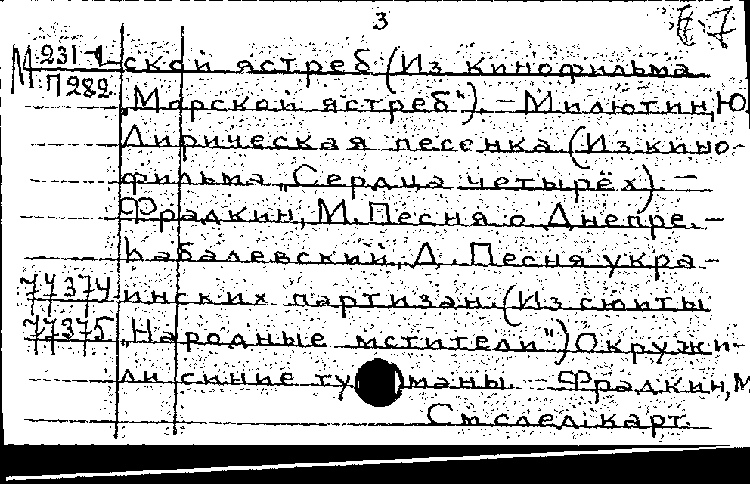 3
М 231-1 ской ястреб (Из кинофильма
П282 „Морской ястреб"). – Милютин, Ю.
Лирическая песенка (Из кино-
фильма „Сердца четырёх). –
Фрадкин, М. Песня о Днепре. –
Кабалевский, Д. Песня укра-
77374 инских партизан. (Из сюиты
77375 „Народные мстители") Окружи-
ли синие туманы. – Фрадкин, М
См след. карт.